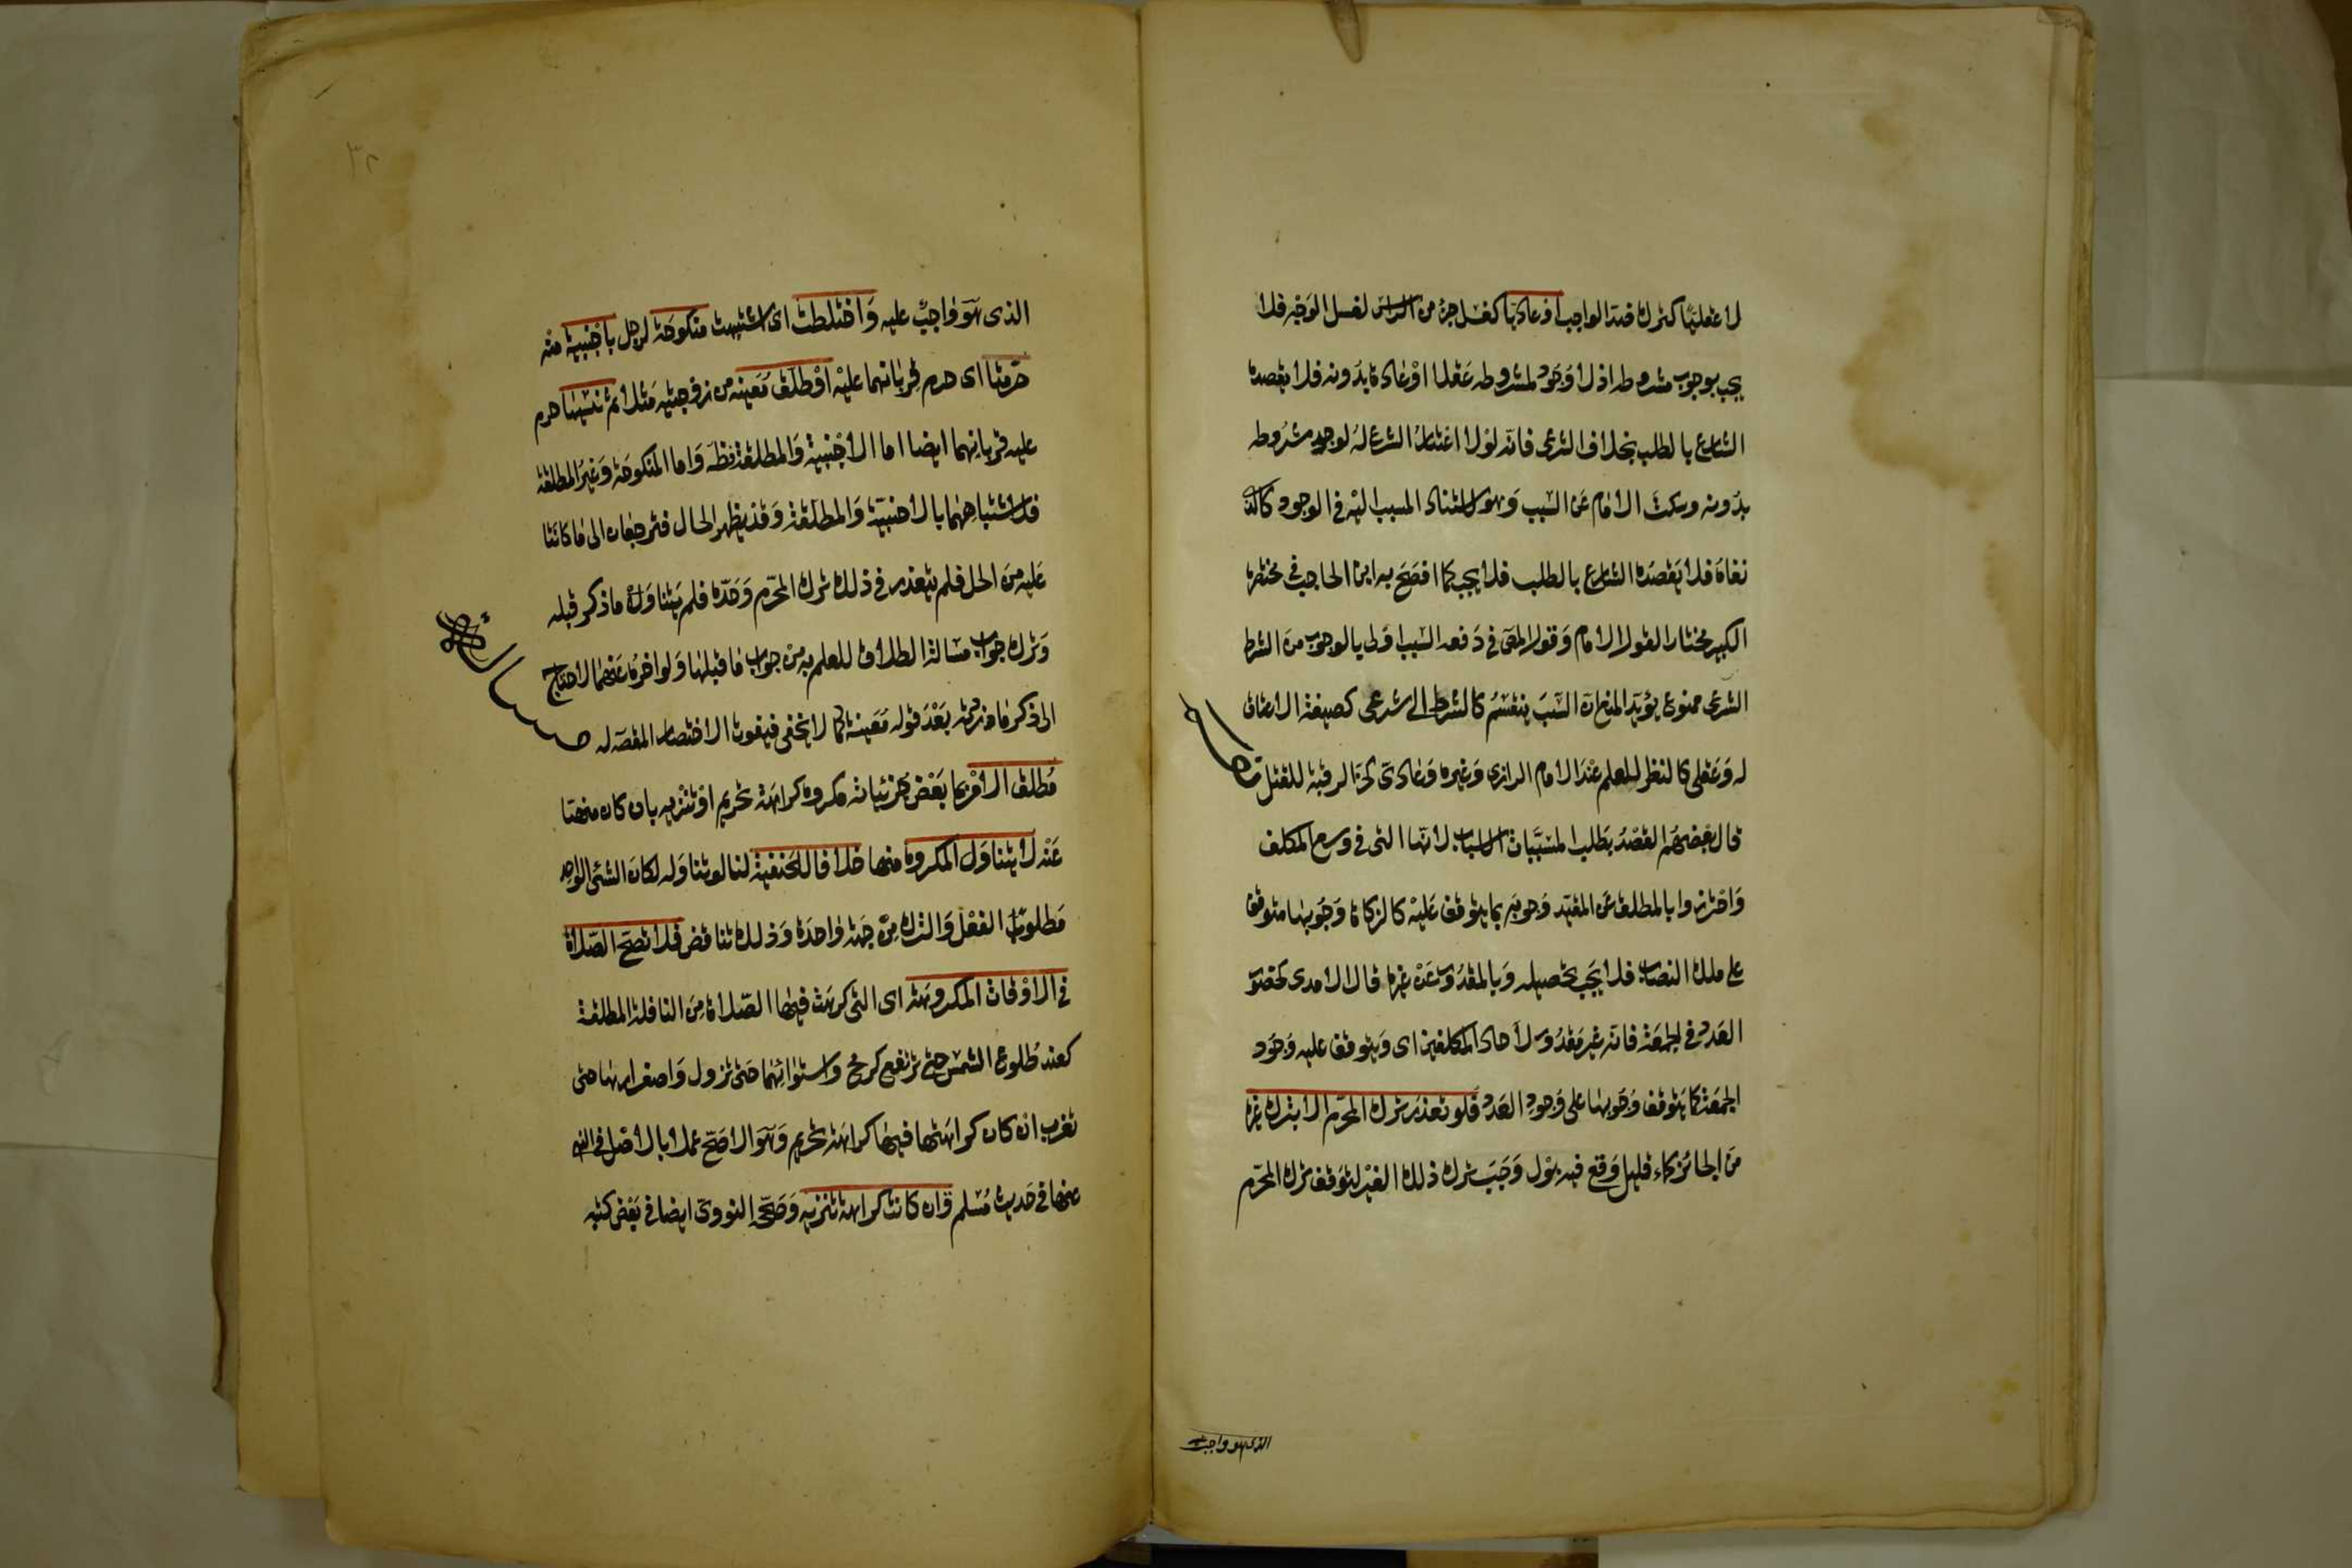 لا عقليا كترك ضد الواجب او عاديا كغسل جزء من الراس لغسل الوجه فلا
يجب بوجوب مشروطه اذ لا وجود لمشروطه عقلا او عادة بدونه فلا يقصده
الشارع بالطلب بخلاف الشرعى فانه لولا اعتبار الشرع له لوجد مشروطه
بدونه وسكت الامام عن السبب وهو لاستناد المسبب اليه فى الوجود كالذى
نفاه فلا يقصده الشارع بالطلب فلا يجب كما افصح به ابن الحاجب فى مختصره
الكبير مختارا لقول الامام وقول المص فى دفعه السبب اولى بالوجوب من الشرط
الشرعى ممنوع يؤيد المنع ان السبب ينقسم كالشرط الى شرعى كصيغة الاعتاق
له وعقلى كالنظر للعلم عند الامام الرازى وغيره وعادى كحز الرقبة للقتل
قال بعضهم القصد بطلب المسببات الاسباب لانها التى فى وسع المكلف
واحترزوا بالمطلق عن المقيد وجوبه بما يتوقف عليه كالزكاة وجوبها متوقف
على ملك النصاب فلا يجب تحصيله وبالمقدور عن غيره قال الامدى كحضور
العدد فى الجمعة فانه غير مقدور لآحاد المكلفين اى ويتوقف عليه وجود
الجمعة كما يتوقف وجوبها على وجود العدد فلو تعذر ترك المحرم الا بترك غيره
من الجائز كماء قليل وقع فيه بول وجب ترك ذلك الغير لتوقف ترك المحرم
الذى هو واجب
٣٢
الذى هو واجب عليه واختلطت اى اشتبهت منكوحة لرجل باجنبية منه
حرمتا اى حرم قربانهما عليه او طلق معينة من زوجتيه مثلا ثم نسيها حرم
عليه قربانهما ايضا اما الاجنبية والمطلقة فظه واما المنكوحة وغير المطلقة
فلاشتباههما بالاجنبية والمطلقة وقد يظهر الحال فترجعان الى ما كانتا
عليه من الحل فلم يتعذر فى ذلك ترك المحرم وحده فلم يتناوله ما ذكر قبله
وترك جواب مسالة الطلاق للعلم به من جواب ما قبلها ولو اخره عنهما لاحتاج
الى ذكر ما زدته بعد قوله معينة كما لا يخفى فيفوت الاختصار المقص له
مسالة
مطلق الامر بما بعض جزئياته مكروه كراهة تحريم او تنزيه بان كان منهيا
عنه لا يتناول المكروه منها خلافا للحنفية لنا لو تناوله لكان الشئ الواحد
مطلوب الفعل والترك من جهة واحدة وذلك تناقض فلا تصح الصلاة
فى الاوقات المكروهة اى التى كرهت فيها الصلاة من النافلة المطلقة
كعند طلوع الشمس حتى ترتفع كرمح واستوائها حتى تزول واصفرارها حتى
تغرب ان كان كراهتها فيها كراهة تحريم وهو الاصح عملا بالاصل فى النهى
عنها فى حديث مسلم وان كانت كراهة تنزيه وصححه النووى ايضا فى بعض كتبه